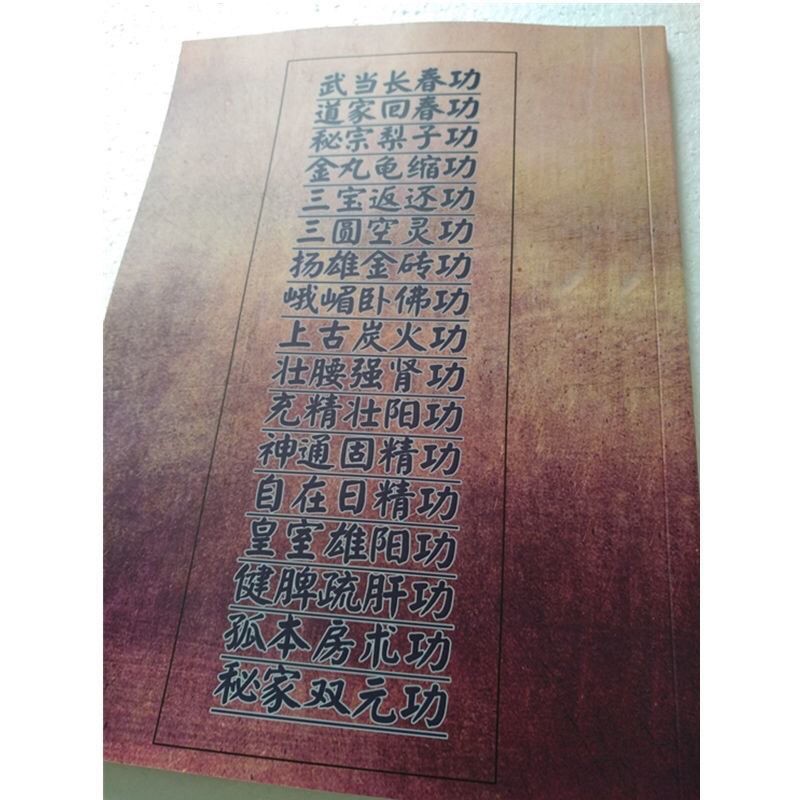 武当长春功
道家回春功
秘宗梨子功
金丸龟缩功
三宝返还功
三圆空灵功
扬雄金砖功
峨嵋卧佛功
上古炭火功
壮腰强肾功
充精壮阳功
神通固精功
自在日精功
皇室雄阳功
健脾疏肝功
孤本房术功
秘家双元功